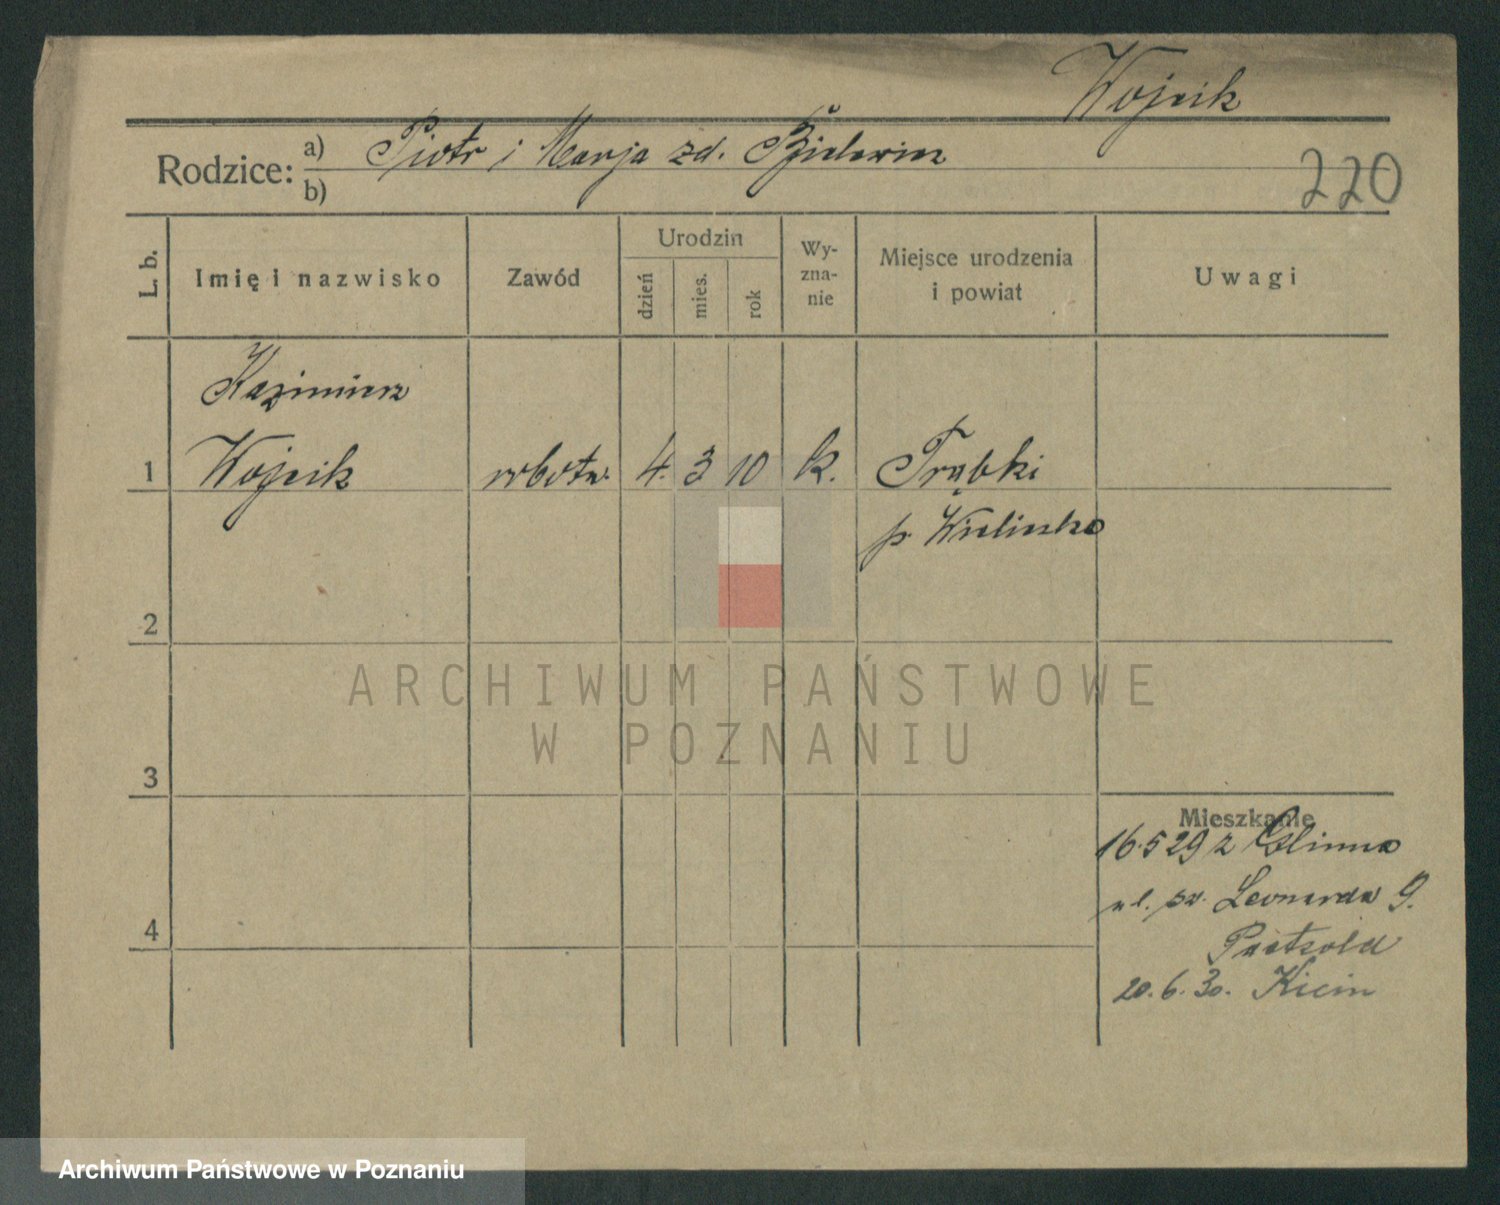 Wojcik
Rodzice: a) Piotr i Marja zd.
b)
220
L. b.
Imię i nazwisko
Zawód
Urodzin
dzień
mies.
rok
Wy-
zna-
nie
Miejsce urodzenia
i powiat
Uwagi
Kazimierz
1 Wojcik robotn. 4. 3 10 k. Trąbki
p. Wieliczka
2
3
4
Mieszkanie
16.5 29 z Glinna
ul. św. Leonarda 9.
Paetzold
20.6.30. Kicin
ARCHIWUM PAŃSTWOWE
W POZNANIU
Archiwum Państwowe w Poznaniu